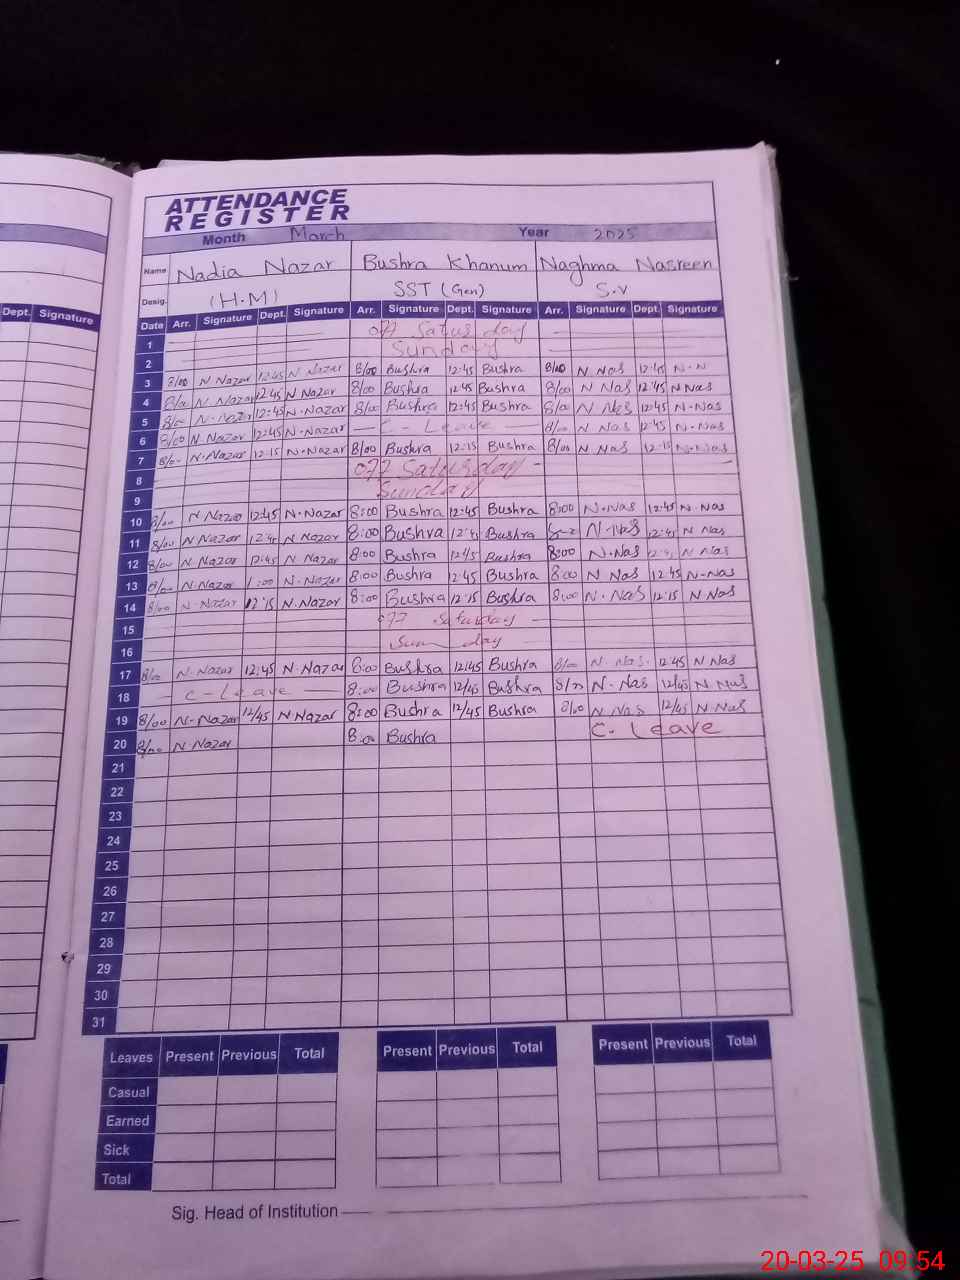 ATTENDANCE
REGISTER
Month March Year 2025
Name Nadia Nazar Bushra Khanum Naghma Nasreen
Desig. (H.M) SST (Gen) S.V
Dept. Signature
Date Arr. Signature Dept. Signature Arr. Signature Dept. Signature Arr. Signature Dept. Signature
1 off Satus day
2 Sunday
3 8/00 N Nazar 12:45 N. Nazar 8/00 Bushra 12:45 Bushra 8/00 N Nas 12:45 N-N
4 8/00 N. Nazar 12:45 N Nazar 8/00 Bushra 12:45 Bushra 8/00 N Nas 12:45 N Nas
5 8/00 N. Nazar 12:45 N. Nazar 8/00 Bushra 12:45 Bushra 8/00 N Nas 12:45 N-Nas
6 8/00 N Nazar 12:45 N. Nazar C- Leave 8/00 N Nas 12:45 N-Nas
7 8/00 N. Nazar 12:15 N. Nazar 8/00 Bushra 12:15 Bushra 8/00 N Nas 12:15 N-Nas
8 off Saturday
9 Sunday
10 8/00 N Nazar 12:45 N. Nazar 8:00 Bushra 12:45 Bushra 8:00 N. Nas 12:45 N. Nas
11 8/00 N Nazar 12:45 N Nazar 8:00 Bushra 12:45 Bushra N-Nas 12:45 N Nas
12 8/00 N Nazar 12:45 N Nazar 8:00 Bushra 12:45 Bushra 8:00 N. Nas 12:45 N Nas
13 8/00 N. Nazar 1:00 N. Nazar 8:00 Bushra 12:45 Bushra 8:00 N Nas 12:45 N-Nas
14 8/00 N. Nazar 12:15 N. Nazar 8:00 Bushra 12:15 Bushra 8:00 N. Nas 12:15 N Nas
15 off Saturday
16 Sun day
17 8/00 N. Nazar 12:45 N. Nazar 8:00 Bushra 12/45 Bushra 8/00 N. Nas. 12:45 N Nas
18 C-Leave 8:00 Bushra 12/45 Bushra N- Nas 12/45 N. Nas
19 8/00 N- Nazar 12/45 N Nazar 8:00 Bushra 12/45 Bushra 8/00 N. Nas 12/45 N-Nas
20 8/00 N Nazar 8:00 Bushra C. Leave
21
22
23
24
25
26
27
28
29
30
31
Leaves Present Previous Total Present Previous Total Present Previous Total
Casual
Earned
Sick
Total
Sig. Head of Institution
20-03-25 09:54